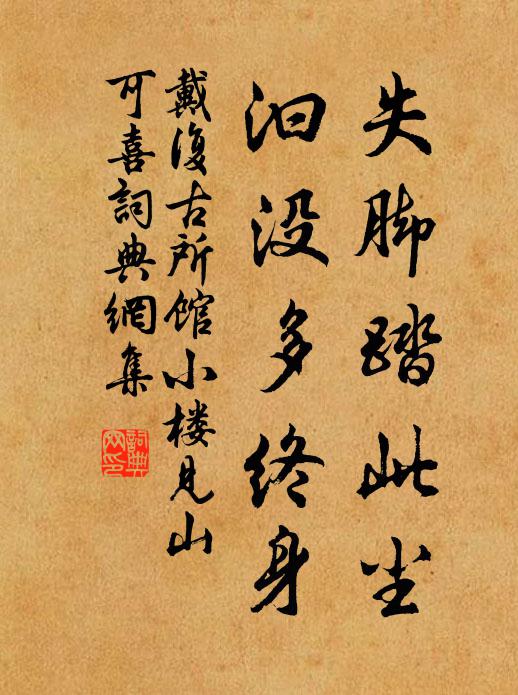 失脚踏此尘
汩没多终身
戴復古所馆小楼见山
可喜詞典網集
詞典
网印